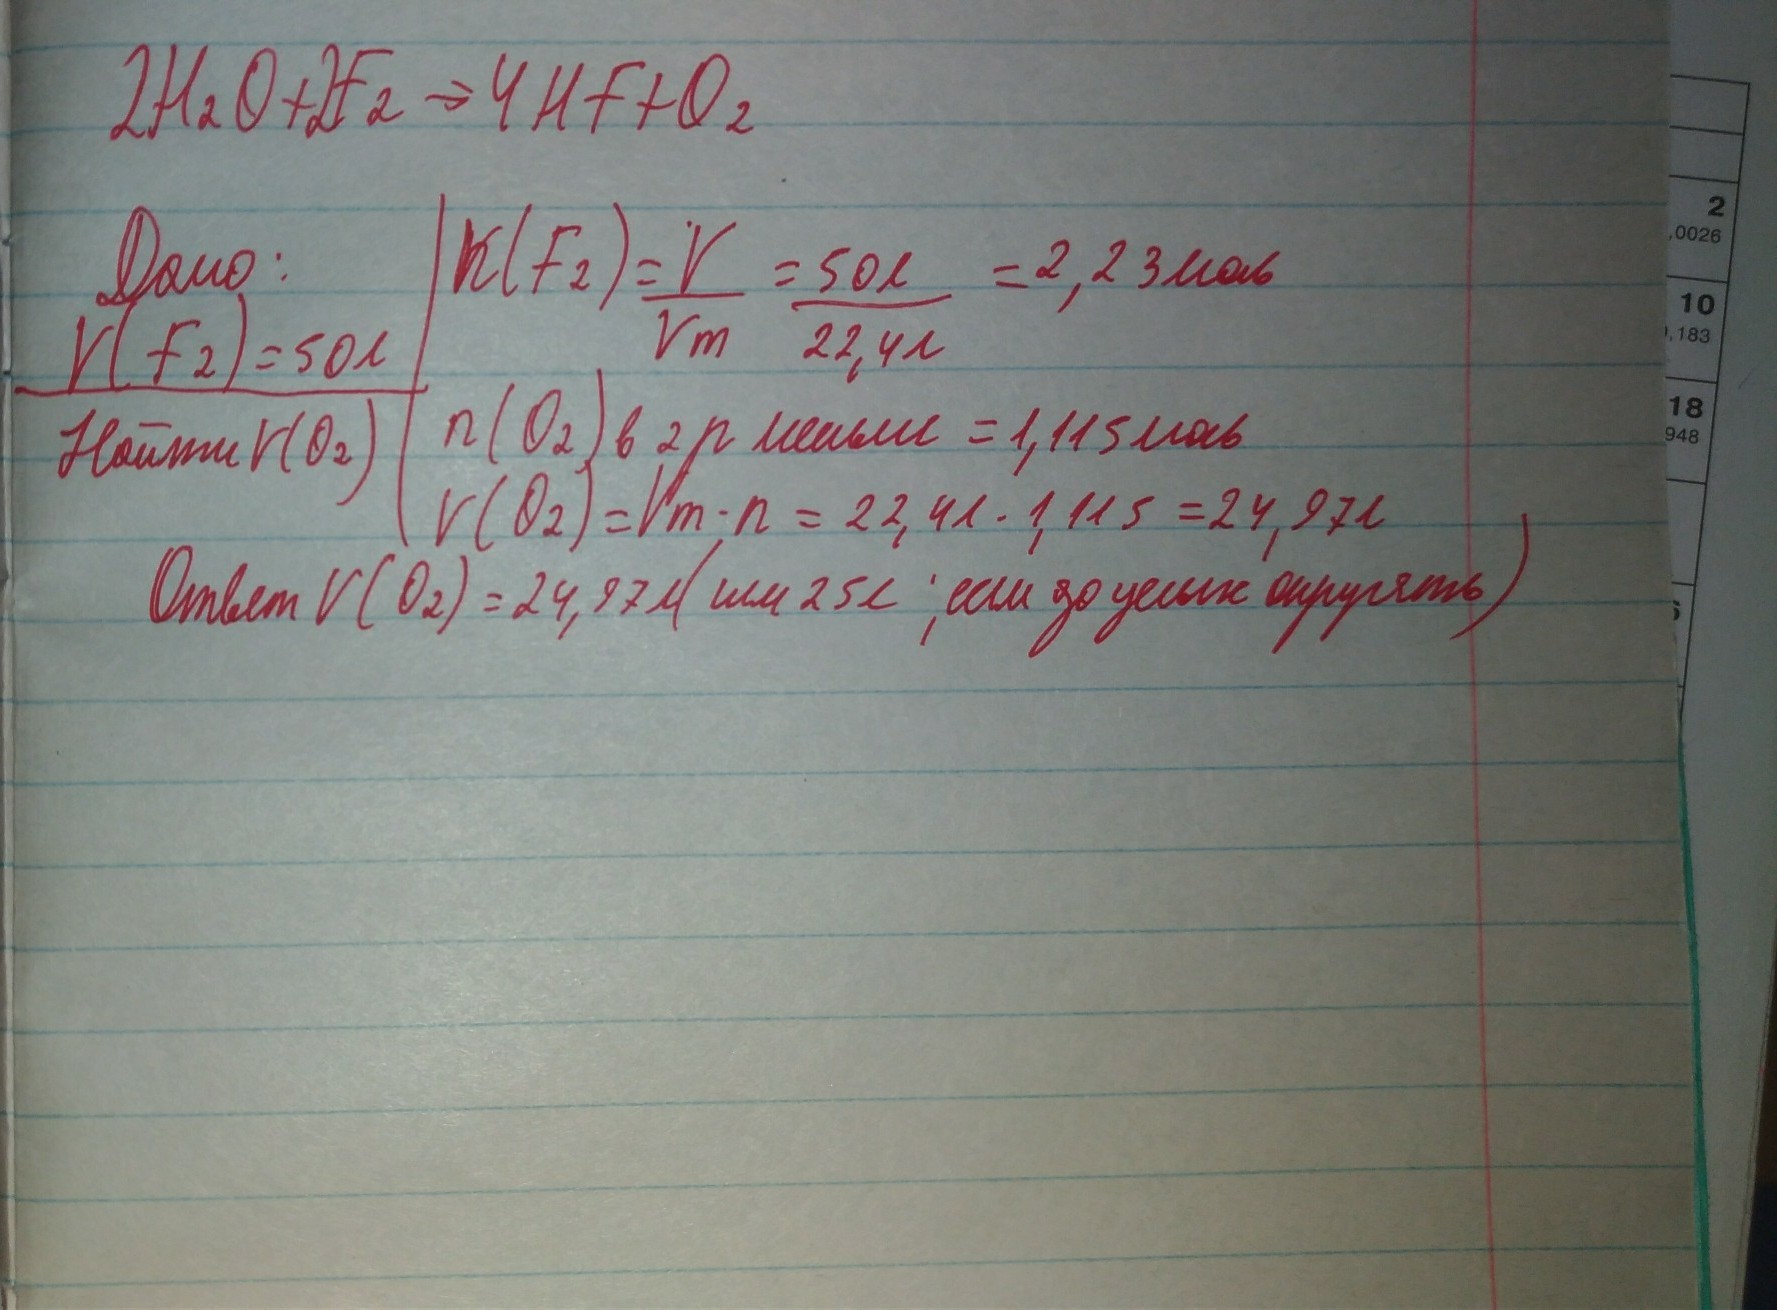 2H₂O+2F₂→4HF+O₂
Дано:
V(F₂)=50л
Найти V(O₂)
n(F₂)=V/Vm=50л/22,4л=2,23моль
n(O₂) в 2р меньше =1,115моль
V(O₂)=Vm·n=22,4л·1,115=24,97л
Ответ V(O₂)=24,97л(или 25л, если до целых округлять)
2
,0026
10
,183
18
948